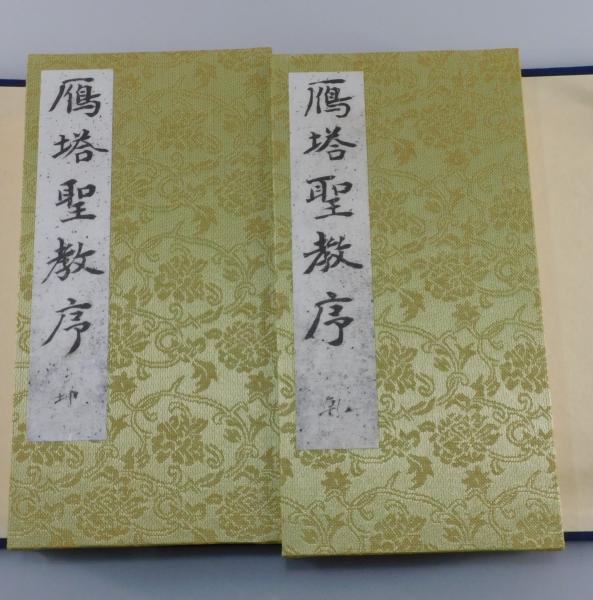 鴈塔聖教序
乾
鴈塔聖教序
坤